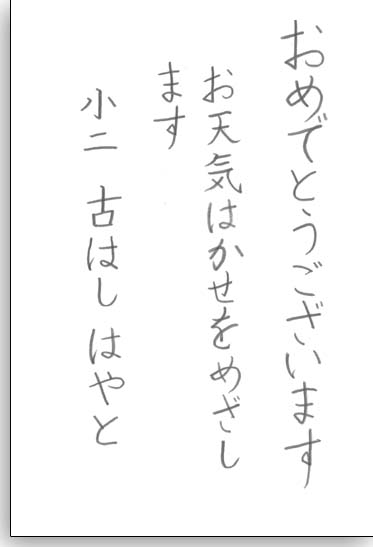 おめでとうございます
お天気はかせをめざし
ます
小二 古はし はやと